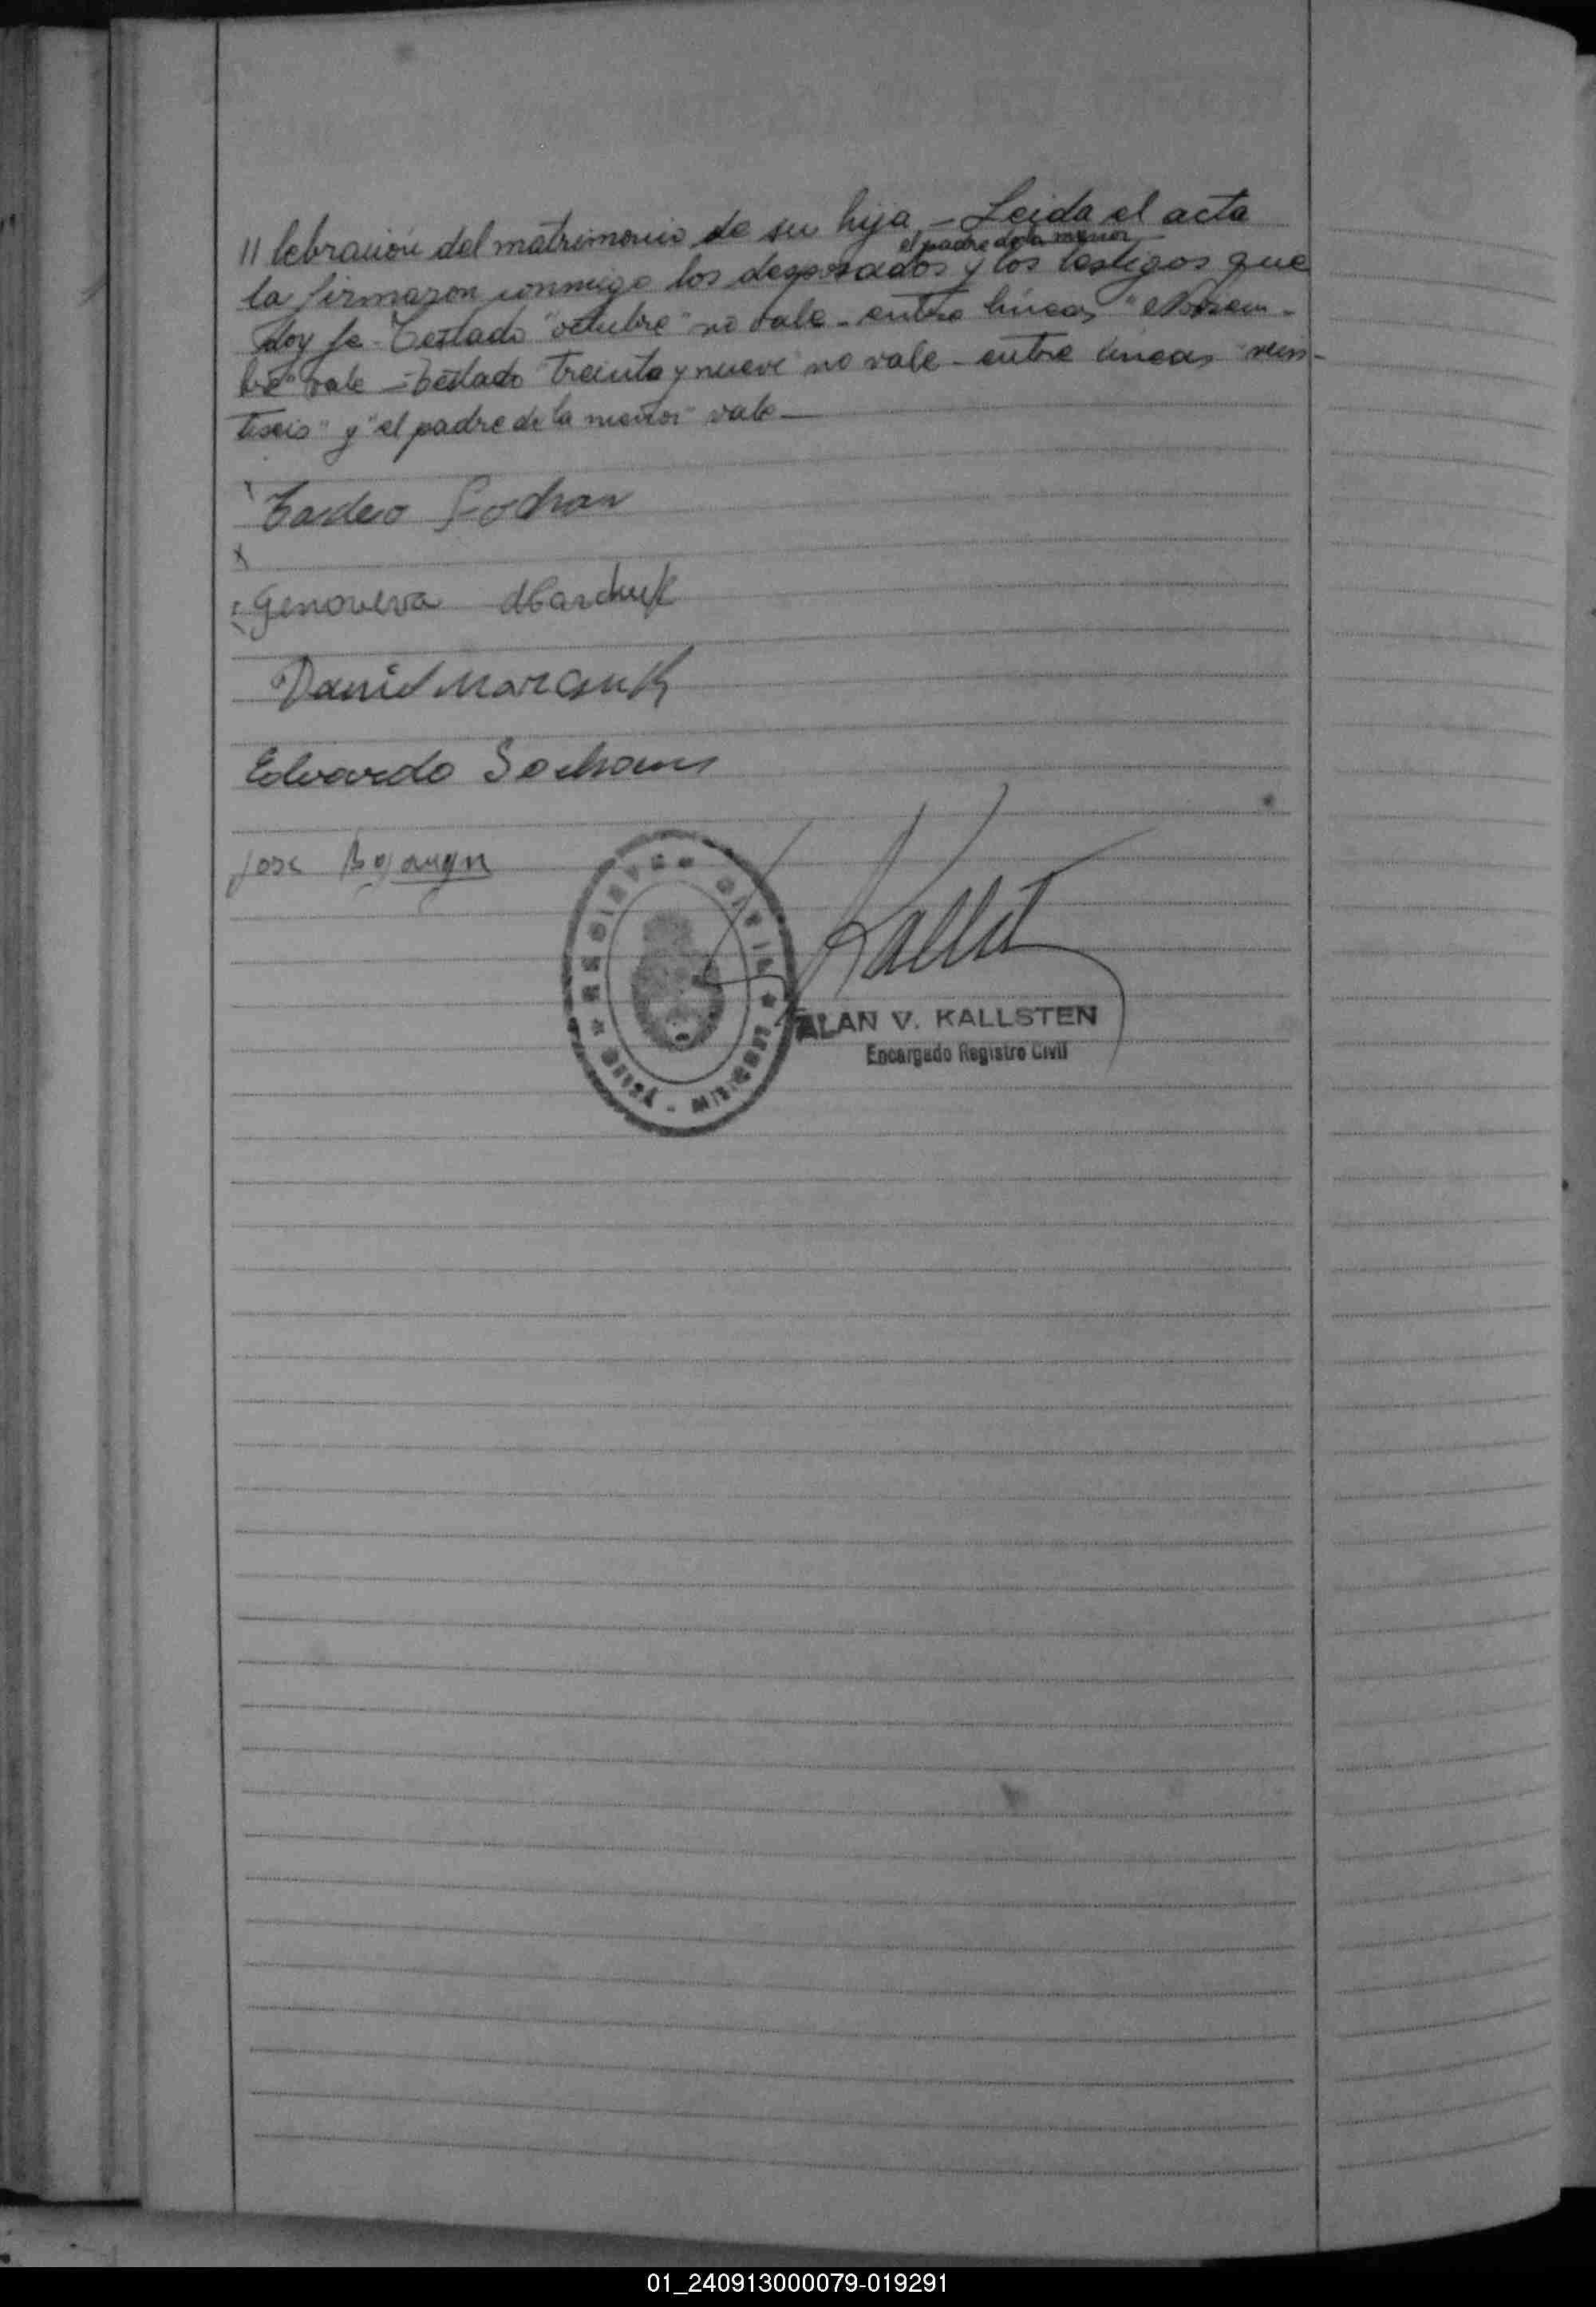 // lebración del matrimonio de su hija, - Leida el acta
el padre de la menor
la firmaron conmigo los desposados y los testigos que
doy fe - Testado "octubre" no vale - entre líneas "Noviem-
bre" vale - Testado "treinta y nueve" no vale - entre líneas "vein-
tiseis" y "el padre de la menor" vale -
Tadeo Sochan
Genoveva Marchuk
Daniel Marcuk
Edvardo Sochan
Jose
Kallst
REGISTRO CIVIL
- MISIONES
ALAN V. KALLSTEN
Encargado Registro Civil
01_240913000079-019291